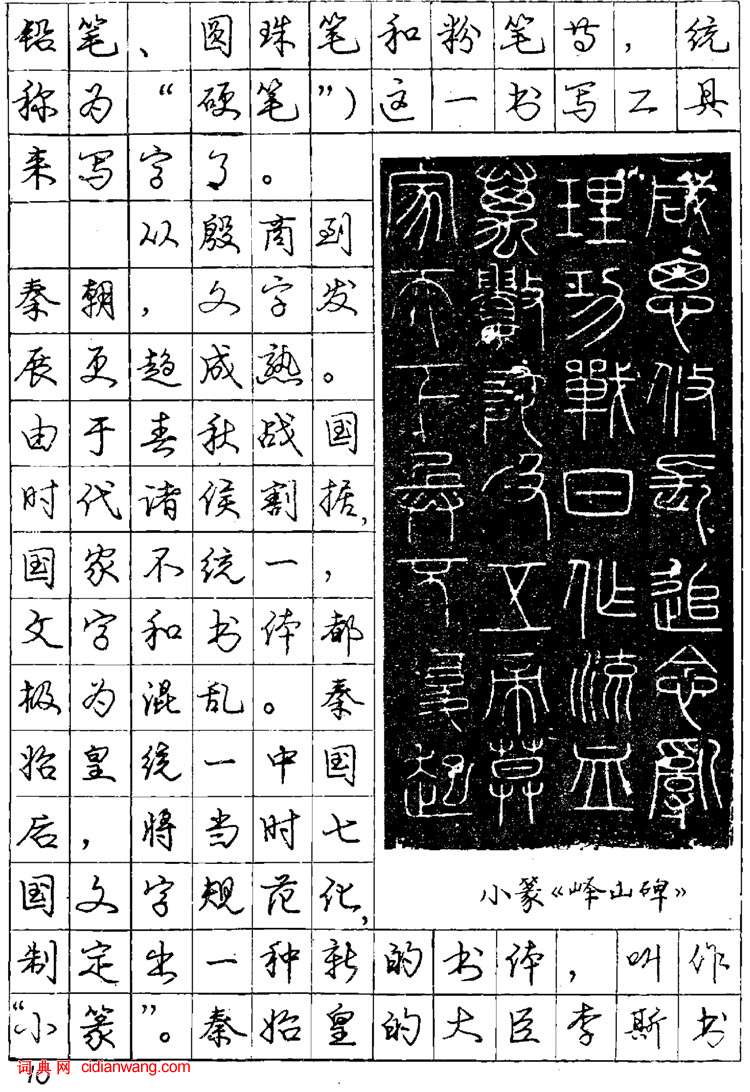 铅笔、圆珠笔和粉笔等，统
称为“硬笔”）这一书写工具
来写字了。
从殷商到
秦朝，文字发
展更趋成熟。
由于春秋战国
时代诸侯割据，
国家不统一，
文字和书体都
极为混乱。秦
始皇统一中国
后，将当时七
国文字规范化，
咸思攸長追念亂
理功戰日作流血
萬數阤及五帝莫
家天下兵不復起
小篆《峄山碑》
制定出一种新的书体，叫作
“小篆”。秦始皇的大臣李斯书
词典网 cidianwang.com
10